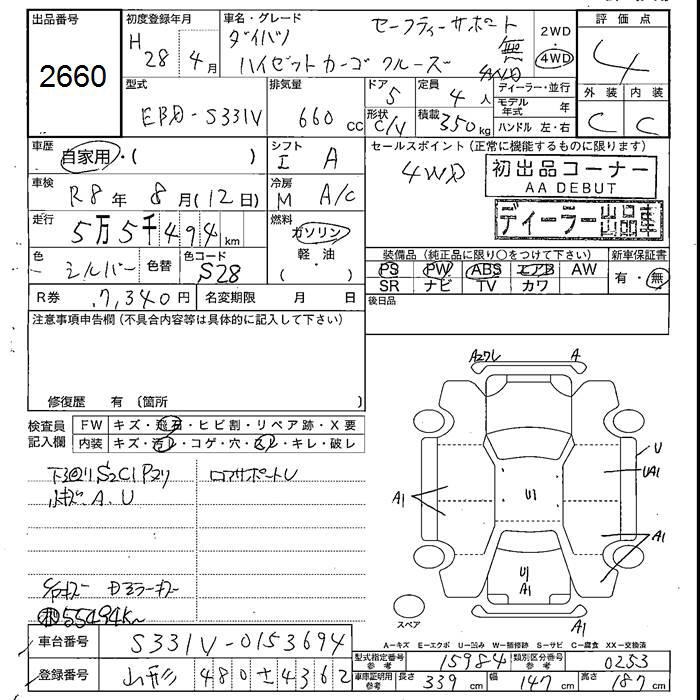 出品番号
2660
初度登録年月
H 28年 4月
車名・グレード
セーフティーサポート 無
ダイハツ
ハイゼットカーゴ クルーズ 4WD
2WD
4WD
評価点
4
外装 内装
C C
型式
EBD-S331V
排気量
660 cc
ドア 5
定員 4人
形状 C/V
積載 350kg
ディーラー・並行
モデル年式 年
ハンドル 左・右
車歴
自家用・( )
シフト
I A
車検
R8年 8月(12日)
冷房
M A/C
走行
5万5千494km
燃料
ガソリン
軽・油
( )
色
シルバー
色替
色コード
S28
R券 7,340円
名変期限 月 日
セールスポイント(正常に機能するものに限ります)
4WD
初出品コーナー
AA DEBUT
ディーラー出品車
装備品(純正品に限り○をつけて下さい)
新車保証書
PS PW ABS エアB AW
SR ナビ TV カワ
有・無
後日品
注意事項申告欄(不具合内容等は具体的に記入して下さい)
修復歴 有〔箇所 〕
検査員記入欄
FW キズ・飛石・ヒビ割・リペア跡・X要
内装 キズ・汚レ・コゲ・穴・スレ・キレ・破レ
下廻りS2C1Pヌリ
小キズ A.U
ロアサポートU
Dミラーキズ
55494K~
A2ワレ A
U
UA1
A1
U1
A1
U1
A1
A1
スペア
A=キズ E=エクボ U=凹み W=補修跡 S=サビ C=腐食 XX=交換済
車台番号 S331V-0153694
登録番号 山形 480 た 4362
型式指定番号 参考 15984
類別区分番号 参考 0253
車庫証明用 参考 長さ 339cm 幅 147cm 高さ 187cm